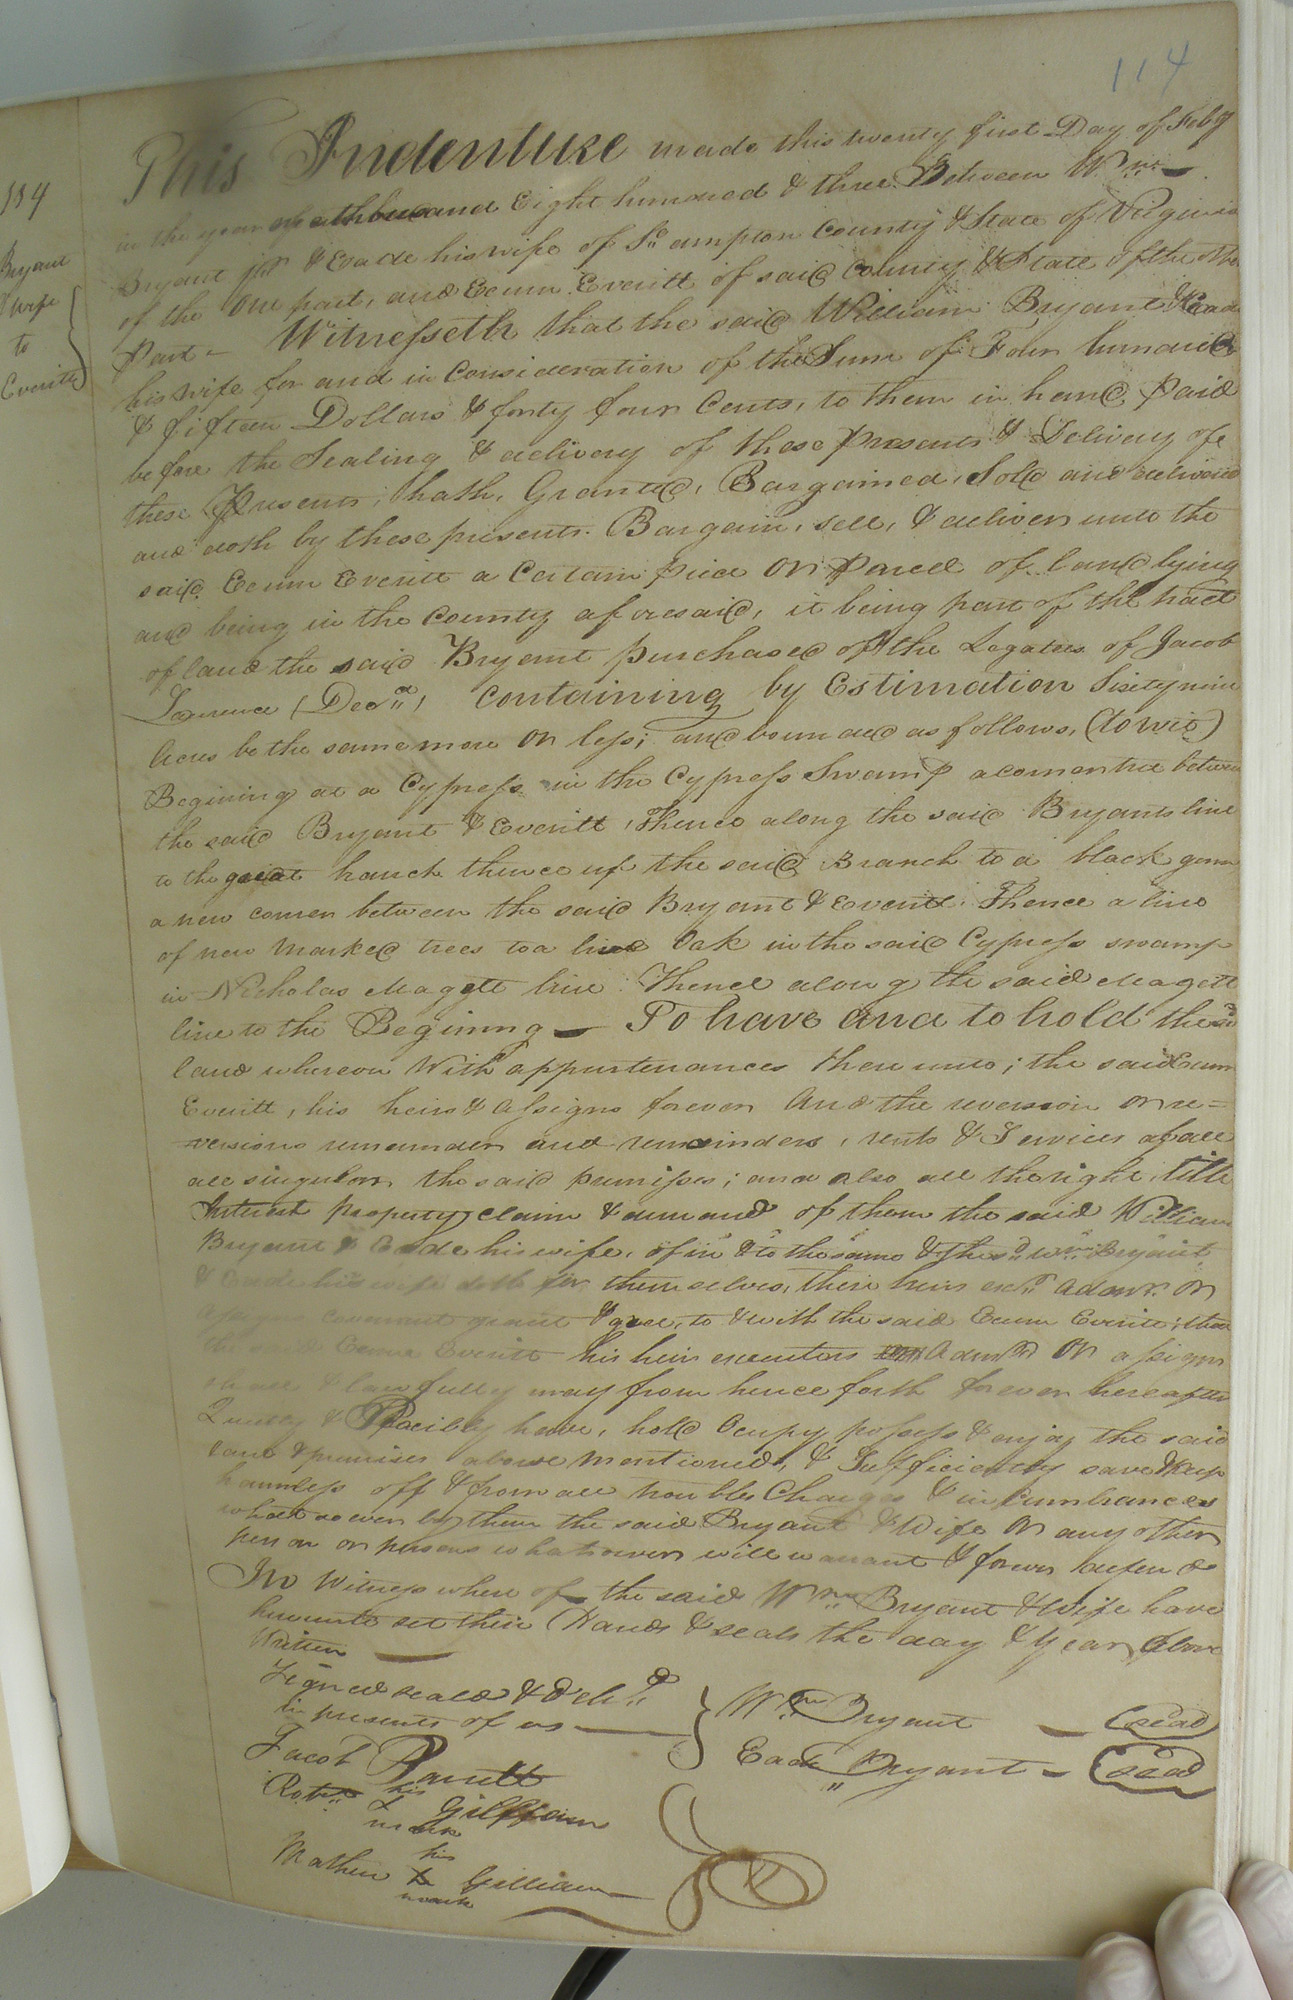 114
114
Bryant
& wife
to
Everitt
This Indenture made this twenty first Day of Feby
in the year thousand Eight hundred & three Between Wm
Bryant jr & Eade his wife of So ampton County & State of Virginia
of the one part, and Exum Everitt of said County & State of the other
Part – Witnesseth that the said William Bryant & Eade
his wife for and in Consideration of the Sum of Four hundred
& fifteen Dollars & forty four Cents, to them in hand Paid
before the Sealing & delivery of these presents & Delivery of
these Presents, hath, Granted, Bargained, Sold and delivered
and doth by these presents. Bargain, sell, & deliver unto the
said Exum Everitt a Certain piece or parcel of land lying
and being in the County aforesaid, it being part of the tract
of land the said Bryant purchased of the Legatees of Jacob
(Decd) Containing by Estimation Sixty nine
Acres be the same more or less; and bounded as follows, (to wit)
Begining at a Cypress in the Cypress Swamp a corner tree between
the said Bryant & Everitt, Thence along the said Bryants line
to the great branch thence up the said Branch to a black gum
a new corner between the said Bryant & Everitt. Thence a line
of new marked trees to a live Oak in the said Cypress swamp
in Nicholas Magett line. Thence along the said Magett
line to the Begining – To have and to hold the sd
land whereon With appurtenances there unto; the said Exum
Everitt, his heirs & assigns forever And the reversion or re=
versions remainder and remainders, rents & Services of all
all singular the said premises; and also all the right, title
Interest property claim & demand of them the said William
Bryant & Eade his wife, of in & to the same & the sd Wm Bryant
& Eade his wife doth for themselves, their heirs exrs admrs or
assigns covenant grant & agree, to & with the said Exum Everitt, that
the said Exum Everitt his heirs executors admrs or assigns
& lawfully may from hence forth forever hereafter
Quietly & Peacibly have, hold Ocupy possess & enjoy the said
land & premises above mentioned, & Sufficiently save & keep
harmless off & from all troubles Charges & incumbrances
what so ever by them the said Bryant & Wife or any other
person or persons whatsoever will warrant & forever defend
In Witness where of the said Wm Bryant & Wife have
hereunto set their Hands & seals the day & Year above
Written
Signed seald & Delivd
in presents of us
Wm Bryant – (seal)
Eade Bryant – (seal)
Jacob Barrett
his
Robt x Gilliam
mark
his
Mathew x Gilliam
mark